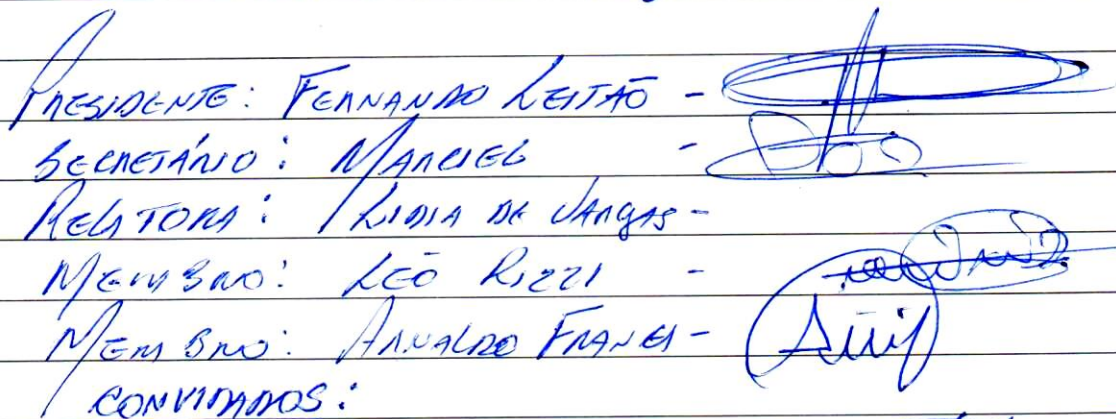 PRESIDENTE: FERNANDO LEITÃO -
SECRETÁRIO: MARCIEL -
RELATORA: LIDIA DE VARGAS -
MEMBRO: LEO RIZZI -
MEMBRO: ARNALDO -
CONVIDADOS: